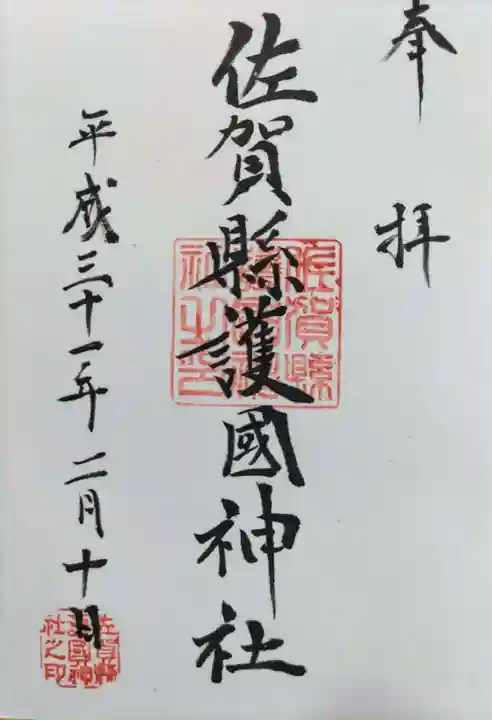 奉拝
佐賀縣護國神社
佐賀縣護國神社之印
平成三十一年二月十日
佐賀縣護國神社之印